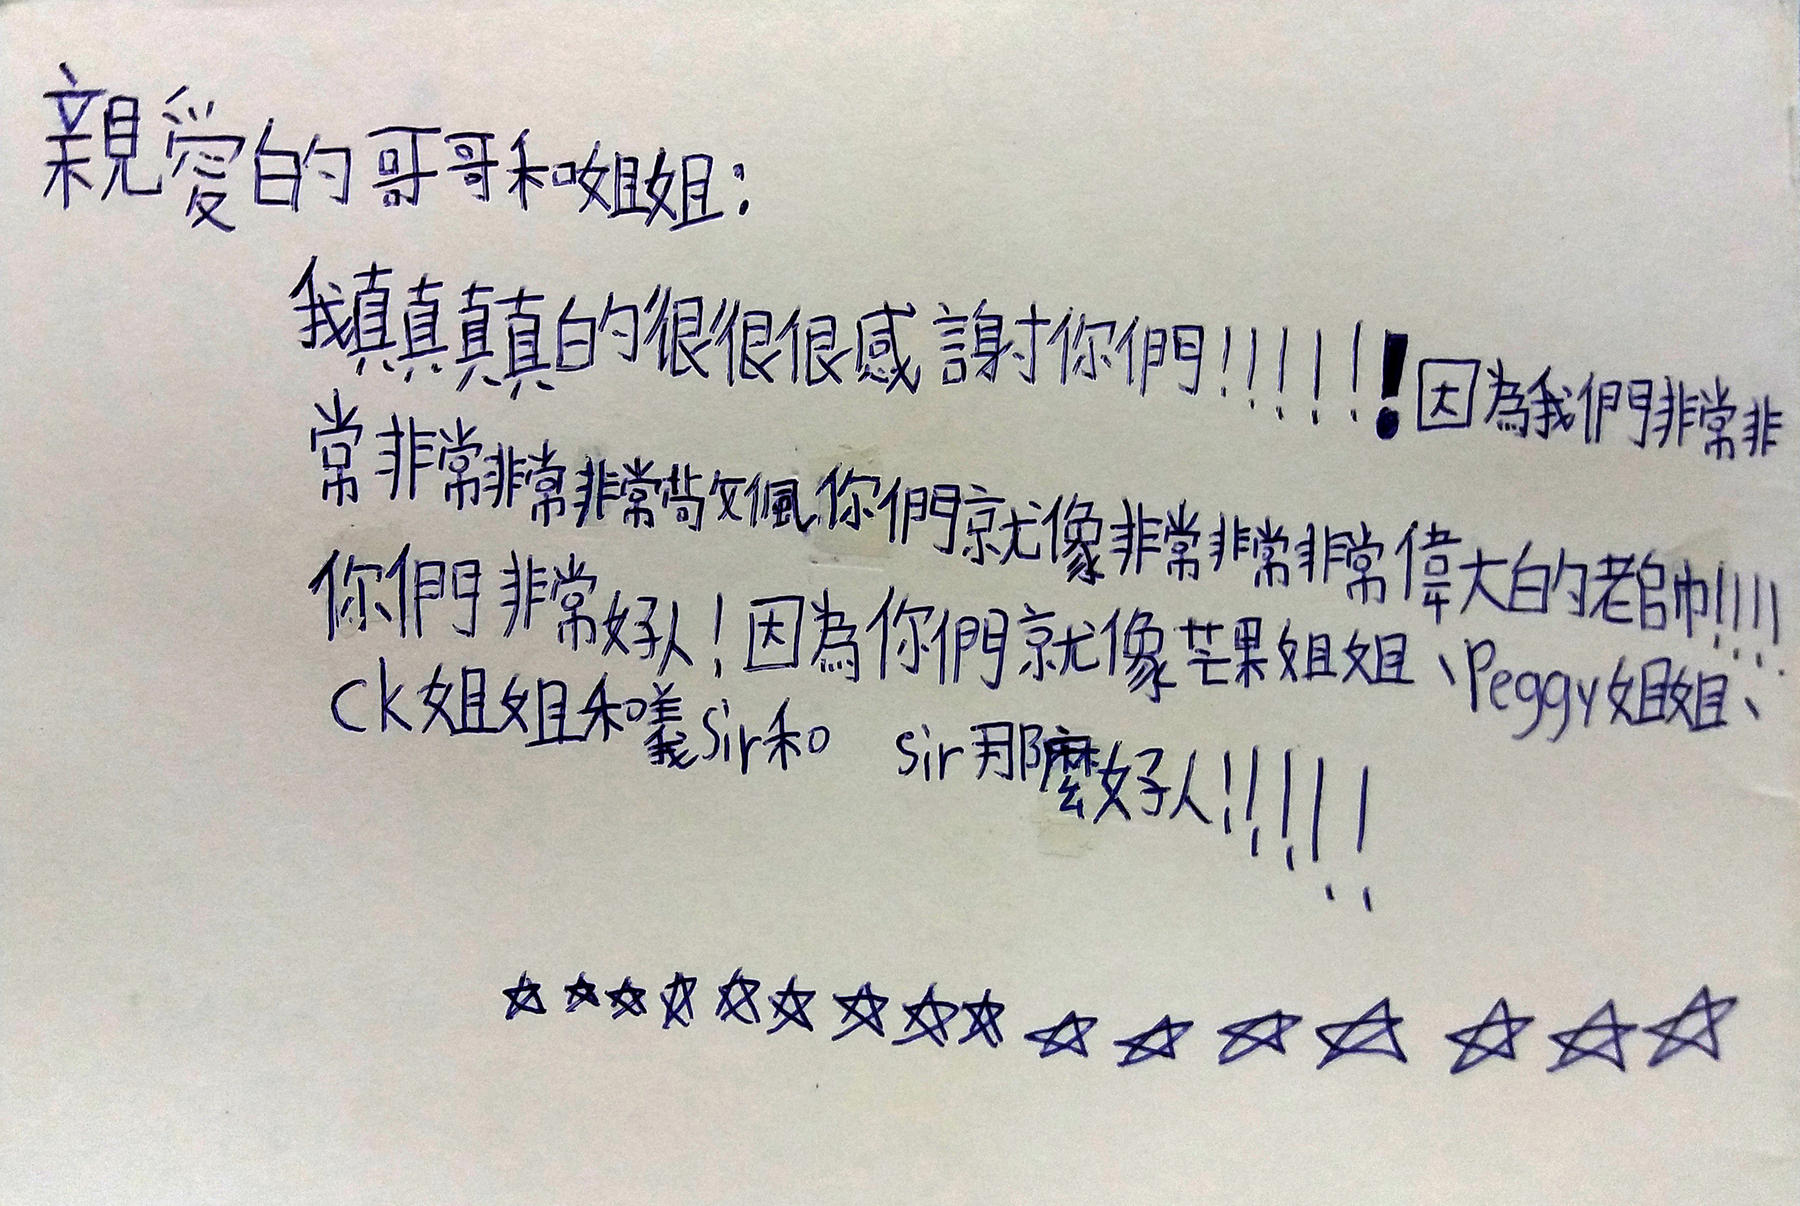 親愛的哥哥和姐姐：
我真真真真的很很很感謝你們！！！！！！因為我們非常非
常非常非常非常敬佩你們就像非常非常非常偉大的老師！！！！
你們非常好人！因為你們就像芒果姐姐、Peggy姐姐、
CK姐姐和義Sir和 sir那麼好人！！！！！